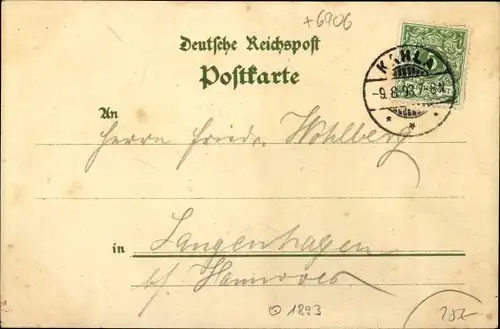 +6906
Deutsche Reichspost
Postkarte
KAHLA
-9.8.93 7-8N.
An
Herrn Friedr. Wohlberg
in
Langenhagen
b/ Hannover.
1893